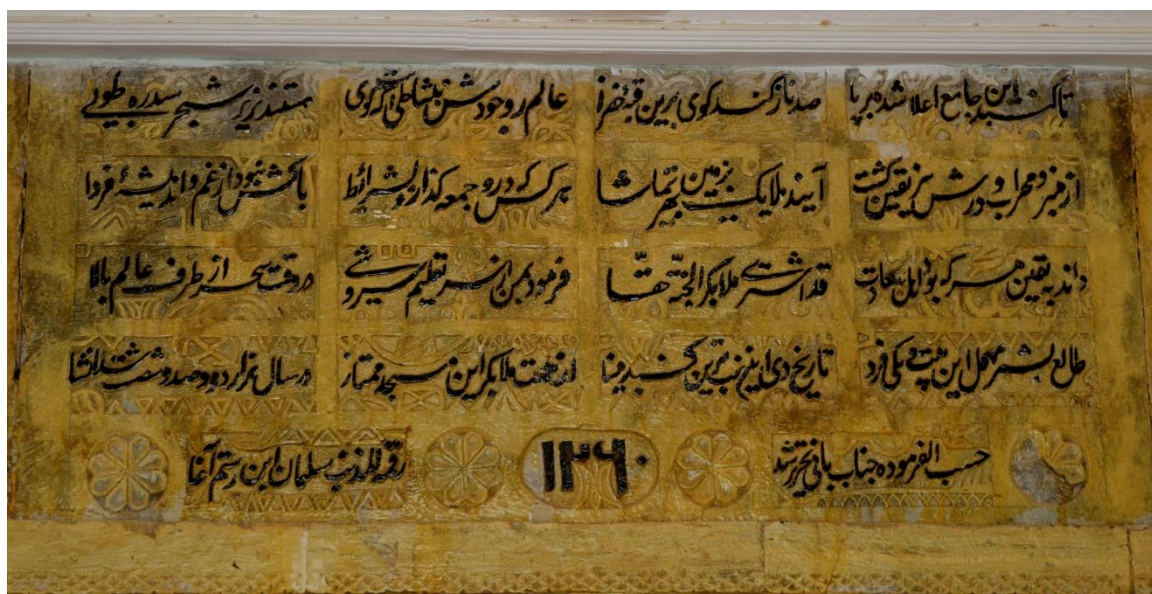 تا گنبد این جامع اعلا شده بر پا صد ناز کند کوی برین قبهٔ خضرا عالم ز وجودش هستند به زیر شجر سدره و طوبی
از منبر و محراب و درش نیز یقین گشت آیند ملایک به زمین بهر تماشا هر کس که درو جمعه گذارد بشرائط باکش نبود از غم و اندیشهٔ فردا
داند به یقین هر که بود اهل سعادت قد اشرت ملا بکر الجنة حقا فرمود بمن از سر تعلیم سروشی در وقت سحر از طرف عالم بالا
این بیت یکی فرد تاریخ دی این زیب ترین گنبد مینا از همت ملا بکر این مسجد ممتاز در سال هزار و دو صد و شصت شد انشا
حسب الفرموده جناب بانی تحریر شد ۱۲۶۰ رقمه المذنب سلمان ابن رستم آغا